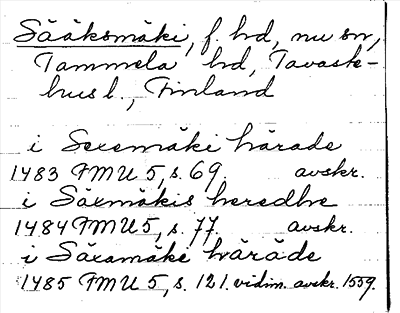 Sääksmäki, f. hd, nu sn,
Tammela hd, Tavaste-
hus l., Finland
i Sexemäki härade
1483 FMU 5, s. 69. avskr.
i Säxmäkis heredhe
1484 FMU 5, s. 77. avskr.
i Säxamäke häräde
1485 FMU 5, s. 121. vidim. avskr. 1559.